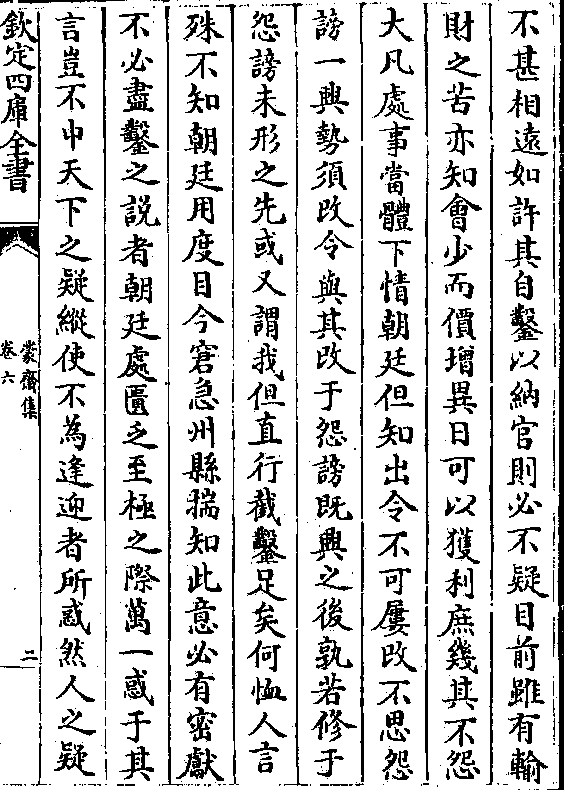 不甚相遠如許其自鑿以納官則必不疑目前雖有輸
財之苦亦知會少而價增異日可以獲利庶幾其不怨
大凡處事當體下情朝廷但知出令不可屢改不思怨
謗一興勢須改令與其改于怨謗既興之後孰若修于
怨謗未形之先或又謂我但直行截鑿足矣何恤人言
殊不知朝廷用度目今窘急州縣揣知此意必有密獻
不必盡鑿之説者朝廷處匱乏至極之際萬一惑于其
言豈不中天下之疑縱使不為逢迎者所惑然人之疑
欽定四庫全書
蒙齋集
卷六
二